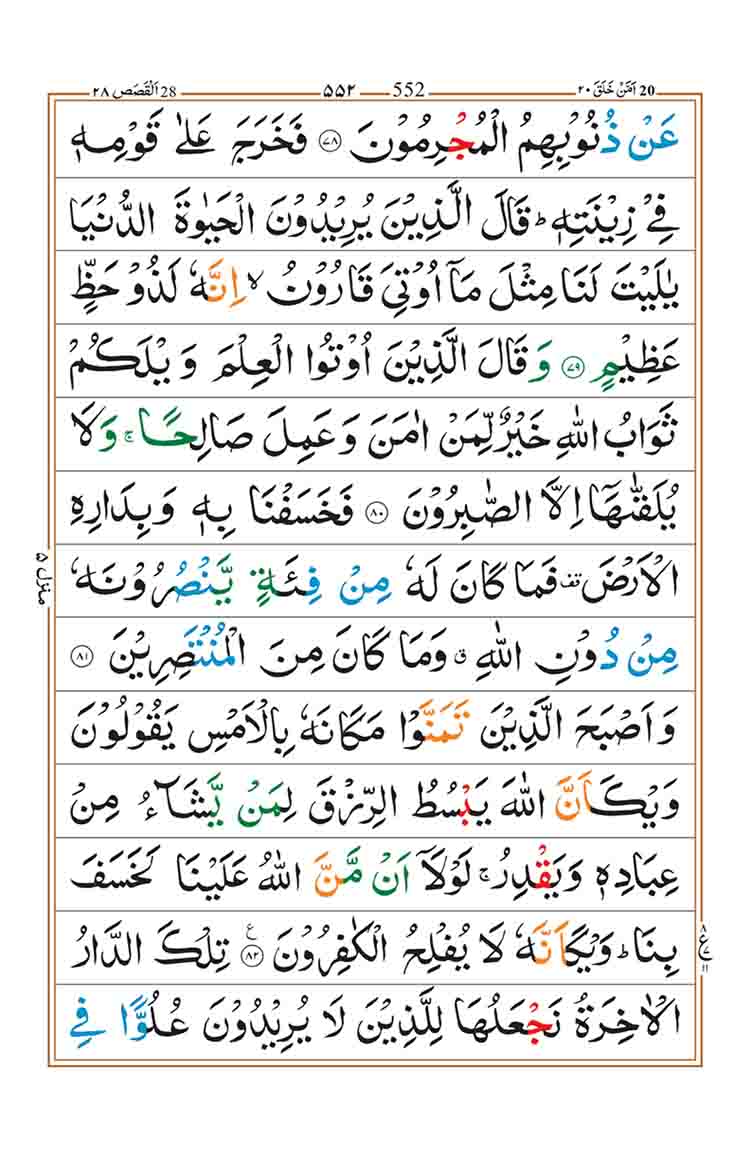 28 اَلْقَصَص ۲۸ 552 ۵۵۲ 20 اَمَّنْ خَلَقَ ۲۰
عَنْ ذُنُوْبِهِمُ الْمُجْرِمُوْنَ ﴿۷۸﴾ فَخَرَجَ عَلٰى قَوْمِهٖ
فِیْ زِیْنَتِهٖ ؕ قَالَ الَّذِیْنَ یُرِیْدُوْنَ الْحَیٰوةَ الدُّنْیَا
یٰلَیْتَ لَنَا مِثْلَ مَاۤ اُوْتِیَ قَارُوْنُ ۙ اِنَّهٗ لَذُوْ حَظٍّ
عَظِیْمٍ ﴿۷۹﴾ وَ قَالَ الَّذِیْنَ اُوْتُوا الْعِلْمَ وَیْلَكُمْ
ثَوَابُ اللّٰهِ خَیْرٌ لِّمَنْ اٰمَنَ وَ عَمِلَ صَالِحًا ۚ وَ لَا
یُلَقّٰىهَاۤ اِلَّا الصّٰبِرُوْنَ ﴿۸۰﴾ فَخَسَفْنَا بِهٖ وَ بِدَارِهِ
الْاَرْضَ ۫ فَمَا كَانَ لَهٗ مِنْ فِئَةٍ یَّنْصُرُوْنَهٗ
مِنْ دُوْنِ اللّٰهِ ۗ وَ مَا كَانَ مِنَ الْمُنْتَصِرِیْنَ ﴿۸۱﴾
وَ اَصْبَحَ الَّذِیْنَ تَمَنَّوْا مَكَانَهٗ بِالْاَمْسِ یَقُوْلُوْنَ
وَیْكَاَنَّ اللّٰهَ یَبْسُطُ الرِّزْقَ لِمَنْ یَّشَآءُ مِنْ
عِبَادِهٖ وَ یَقْدِرُ ۚ لَوْلَاۤ اَنْ مَّنَّ اللّٰهُ عَلَیْنَا لَخَسَفَ
بِنَا ؕ وَیْكَاَنَّهٗ لَا یُفْلِحُ الْكٰفِرُوْنَ ﴿۸۲﴾ تِلْكَ الدَّارُ
الْاٰخِرَةُ نَجْعَلُهَا لِلَّذِیْنَ لَا یُرِیْدُوْنَ عُلُوًّا فِی
منزل ۵
ع